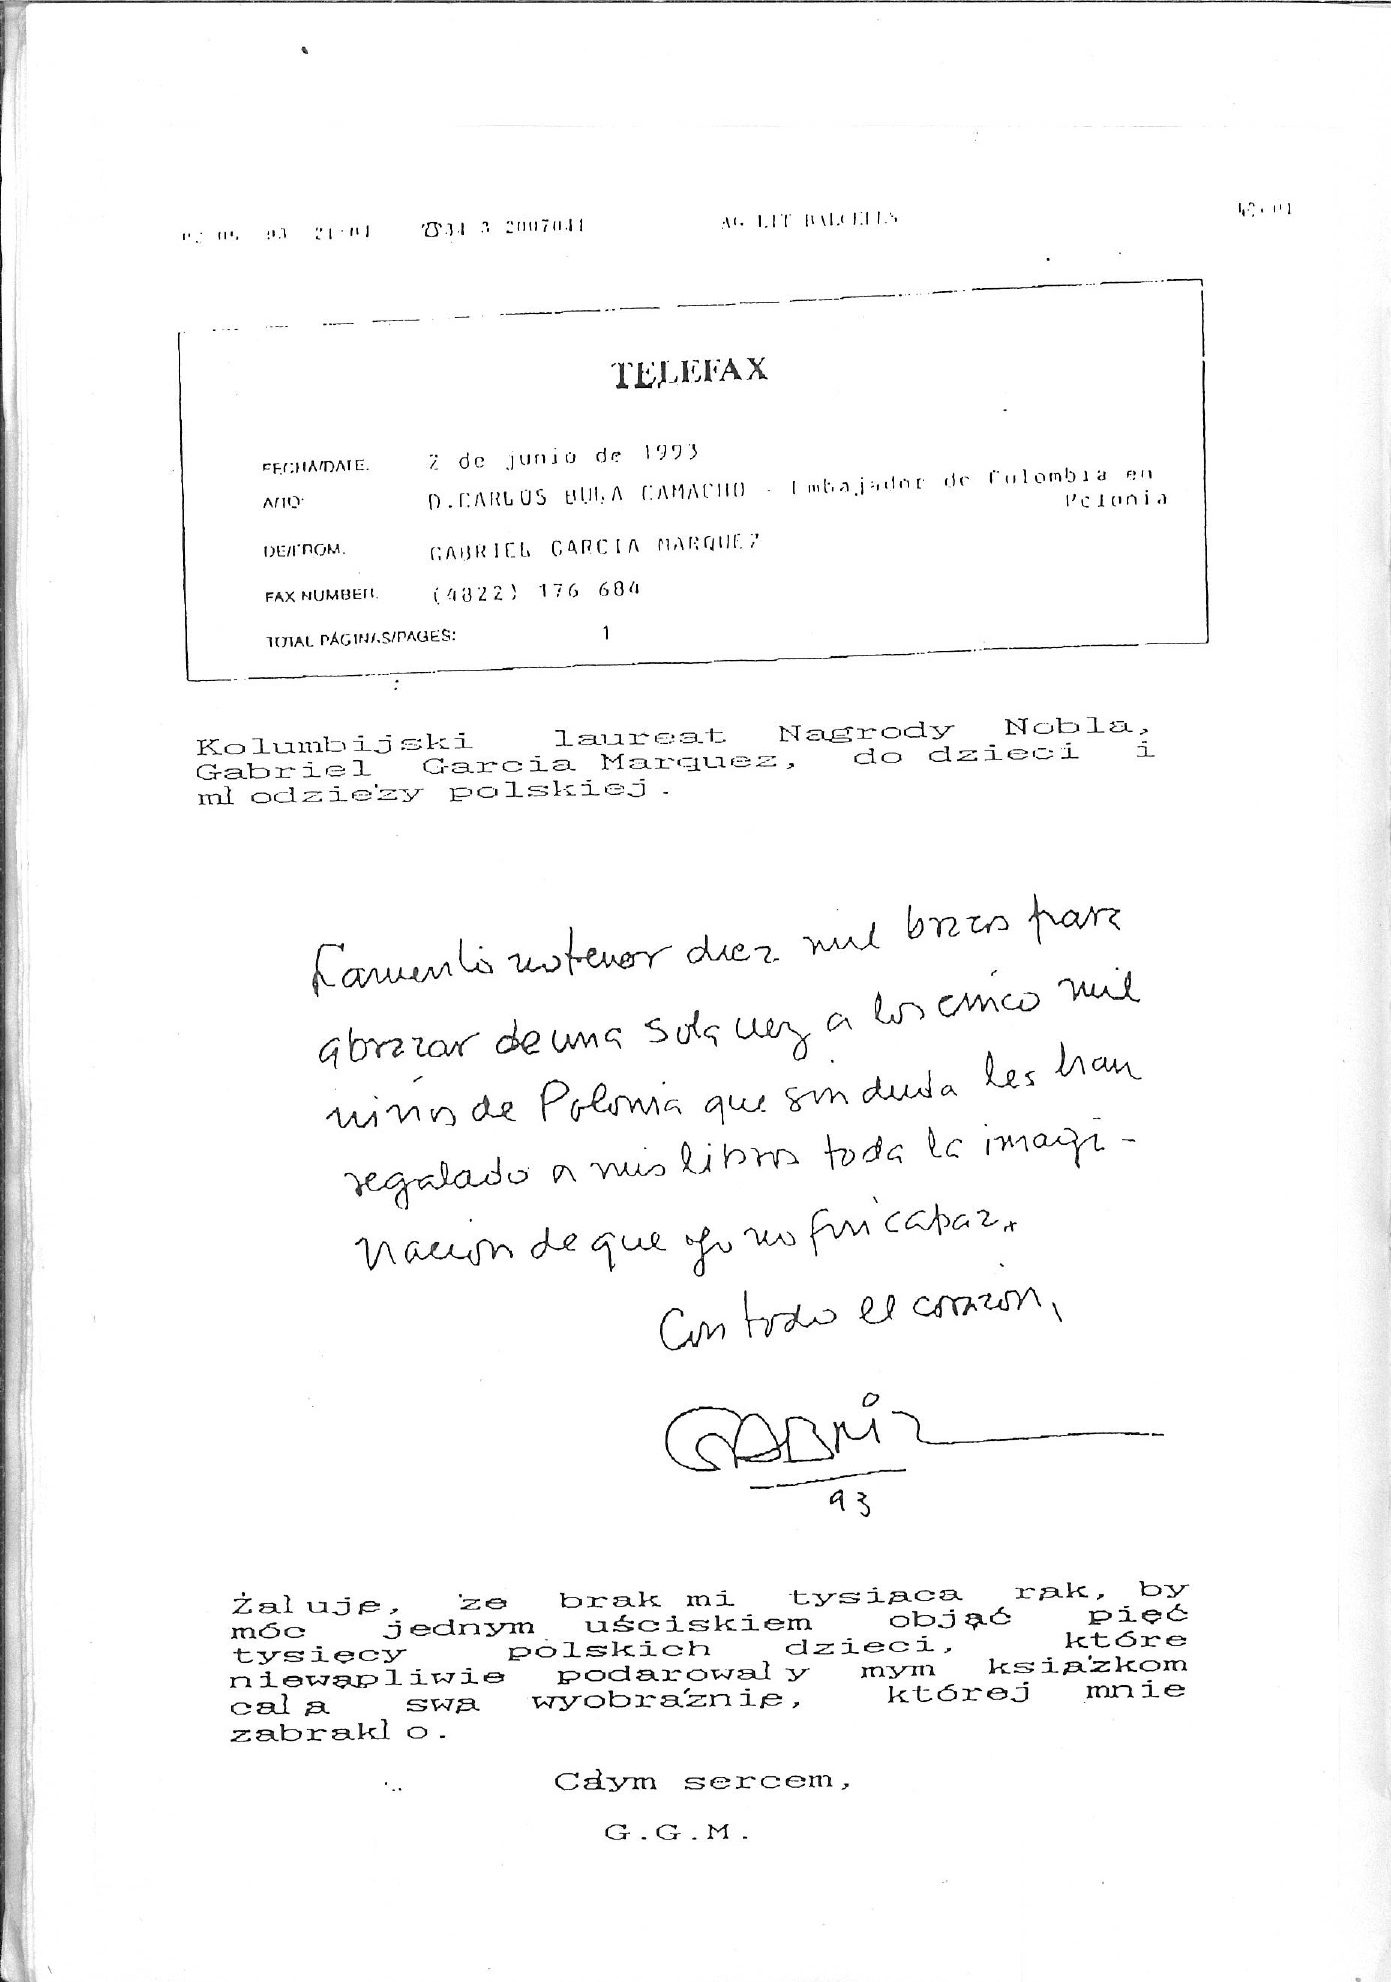 93 21:01 ☎34 3 2007041 AG LIT BALCELLS
TELEFAX
FECHA/DATE: 2 de junio de 1993
A/TO: D.CARLOS BULA CAMACHO - Embajador de Colombia en
Polonia
DE/FROM: GABRIEL GARCIA MARQUEZ
FAX NUMBER: (4822) 176 684
TOTAL PÁGINAS/PAGES: 1
Kolumbijski laureat Nagrody Nobla,
Gabriel Garcia Marquez, do dzieci i
młodzieży polskiej.
Lamento no tener diez mil brazos para
abrazar de una sola vez a los cinco mil
niños de Polonia que sin duda les han
regalado a mis libros toda la imagi-
nación de que yo no fui capaz.
Con todo el corazón,
GABRIEL
93
Żałuję, że brak mi tysiąca rąk, by
móc jednym uściskiem objąć pięć
tysięcy polskich dzieci, które
niewąpliwie podarowały mym książkom
całą swą wyobraźnię, której mnie
zabrakło.
Całym sercem,
G.G.M.